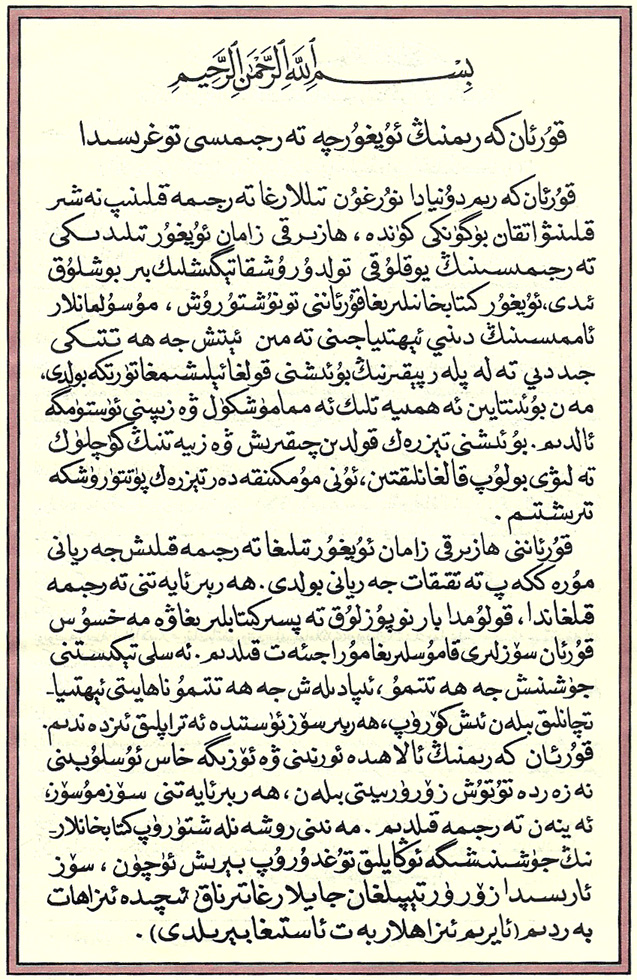 بِسْمِ اللهِ الرَّحْمٰنِ الرَّحِيمِ
قۇرئان كەرىمنىڭ ئۇيغۇرچە تەرجىمىسى توغرىسىدا
قۇرئان كەرىم دۇنيادا نۇرغۇن تىللارغا تەرجىمە قىلىنىپ نەشر
قىلىنىۋاتقان بۈگۈنكى كۈندە، ھازىرقى زامان ئۇيغۇر تىلىدىكى
تەرجىمىسىنىڭ يوقلۇقى تولدۇرۇشقا تېگىشلىك بىر بوشلۇق
ئىدى، ئۇيغۇر كىتابخانلىرىغا قۇرئاننى تونۇشتۇرۇش، مۇسۇلمانلار
ئاممىسىنىڭ دىنىي ئېھتىياجىنى تەمىن ئېتىش جەھەتتىكى
جىددىي تەلەپلەر پېقىرنىڭ بۇ ئىشنى قولغا ئېلىشىمغا تۈرتكە بولدى،
مەن بۇ ئىنتايىن ئەھمىيەتلىك ئەمما مۈشكۈل ۋەزىپىنى ئۈستۈمگە
ئالدىم. بۇ ئىشنى تېزرەك قولدىن چىقىرىش ۋەزىيەتنىڭ كۈچلۈك
تەلىۋى بولۇپ قالغانلىقتىن، ئۇنى مۇمكىنقەدەر تېزرەك پۈتتۈرۈشكە
تىرىشتىم.
قۇرئاننى ھازىرقى زامان ئۇيغۇر تىلىغا تەرجىمە قىلىش جەريانى
مۇرەككەپ تەتقىقات جەريانى بولدى. ھەر بىر ئايەتنى تەرجىمە
قىلغاندا، قولۇمدا بار نوپۇزلۇق تەپسىر كىتابلىرىغا ۋە مەخسۇس
قۇرئان سۆزلىرى قامۇسلىرىغا مۇراجىئەت قىلدىم. ئەسلى تېكىستنى
چۈشىنىش جەھەتتىمۇ، ئىپادىلەش جەھەتتىمۇ ناھايىتى ئېھتىيا-
تچانلىق بىلەن ئىش كۆرۈپ، ھەر بىر سۆز ئۈستىدە ئەتراپلىق ئىزدەندىم.
قۇرئان كەرىمنىڭ ئالاھىدە ئورنىنى ۋە ئۆزىگە خاس ئۇسلۇبىنى
نەزەردە تۇتۇش زۆرۈرىيىتى بىلەن، ھەر بىر ئايەتنى سۆزمۇسۆز،
ئەينەن تەرجىمە قىلدىم. مەنىنى روشەنلەشتۈرۈپ كىتابخانلار-
نىڭ چۈشىنىشىگە ئوڭايلىق تۇغدۇرۇپ بېرىش ئۈچۈن، سۆز
ئارىسىدا زۆرۈر تېپىلغان جايلارغا تىرناق ئىچىدە ئىزاھات
بەردىم (ئايرىم ئىزاھلار بەت ئاستىغا بېرىلدى).